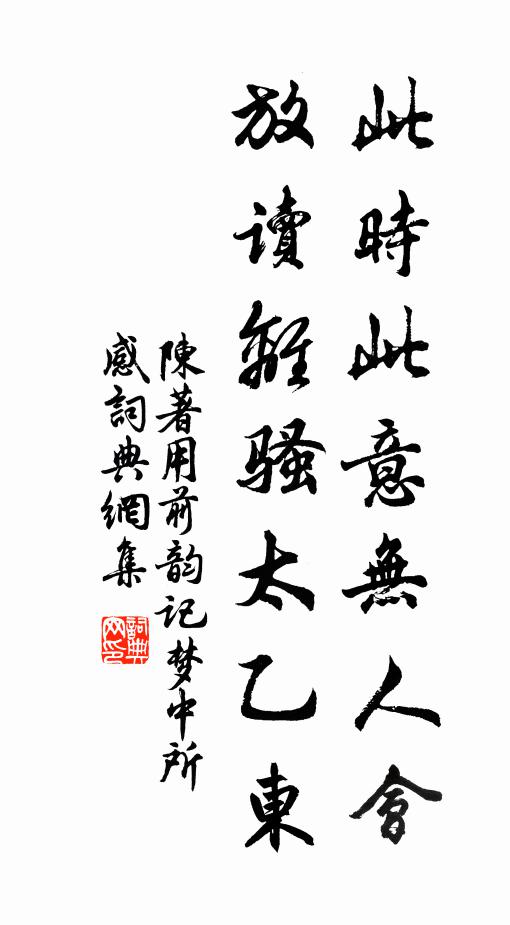 此時此意無人會
放读離骚太乙東
陳著用前韵記梦中所
感詞典網集
詞典网印